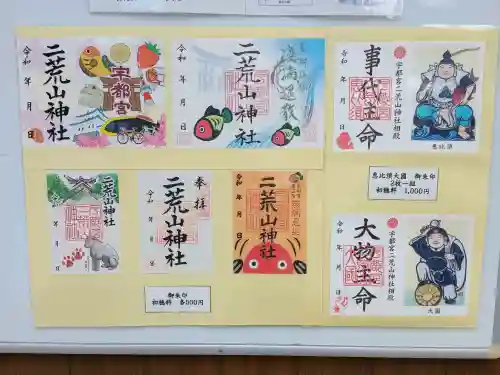 令和 年 月 日
二荒山神社
宇都宮
令和 年 月 日
二荒山神社
令和 年 月 日
事代主命
宇都宮二荒山神社相殿
恵比須
恵比須大國 御朱印
2枚一組
初穂料 1,000円
二荒山神社
令和 年 月 日
奉拝
二荒山神社
令和 年 月 日
二荒山神社
令和 年 月 日
御朱印
初穂料 各500円
令和 年 月 日
大物主命
宇都宮二荒山神社相殿
大國